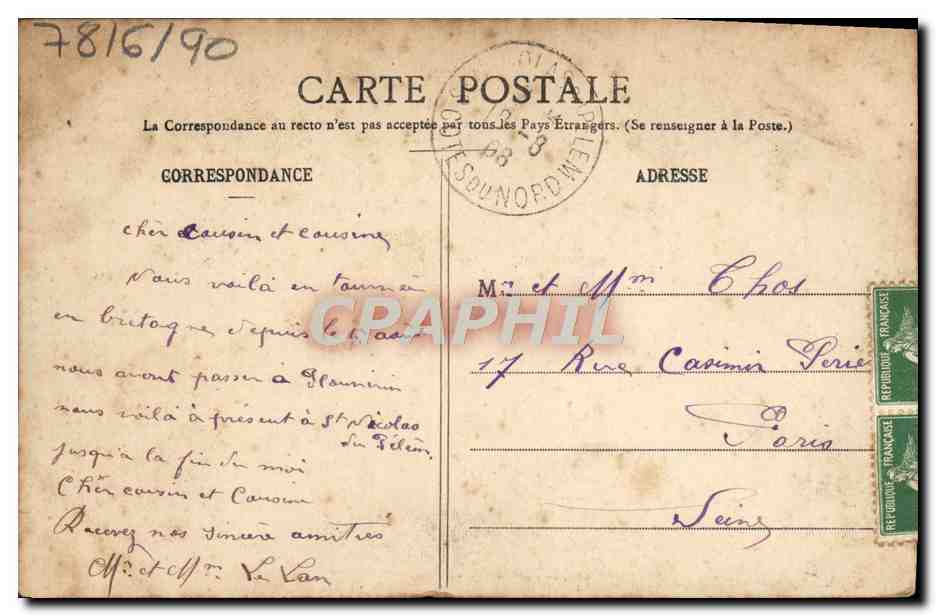 78/6/90
CARTE POSTALE
La Correspondance au recto n'est pas acceptée par tous les Pays Étrangers. (Se renseigner à la Poste.)
COTES DU NORD
CORRESPONDANCE
chèr cousin et cousine
Nous voilà en tournée
en bretagne depuis le août
nous avont passer à
nous voilà à présent à St Nicolas
du Pélem
jusqu'a la fin du moi
Chèr cousin et Cousine
Recevez nos sincère amitiés
Mr et Mm Le Lan
ADRESSE
Mr et Mm Thos
17 Rue Casimir Perie
Paris
Seine
REPUBLIQUE FRANÇAISE
REPUBLIQUE FRANÇAISE
CPAPHIL